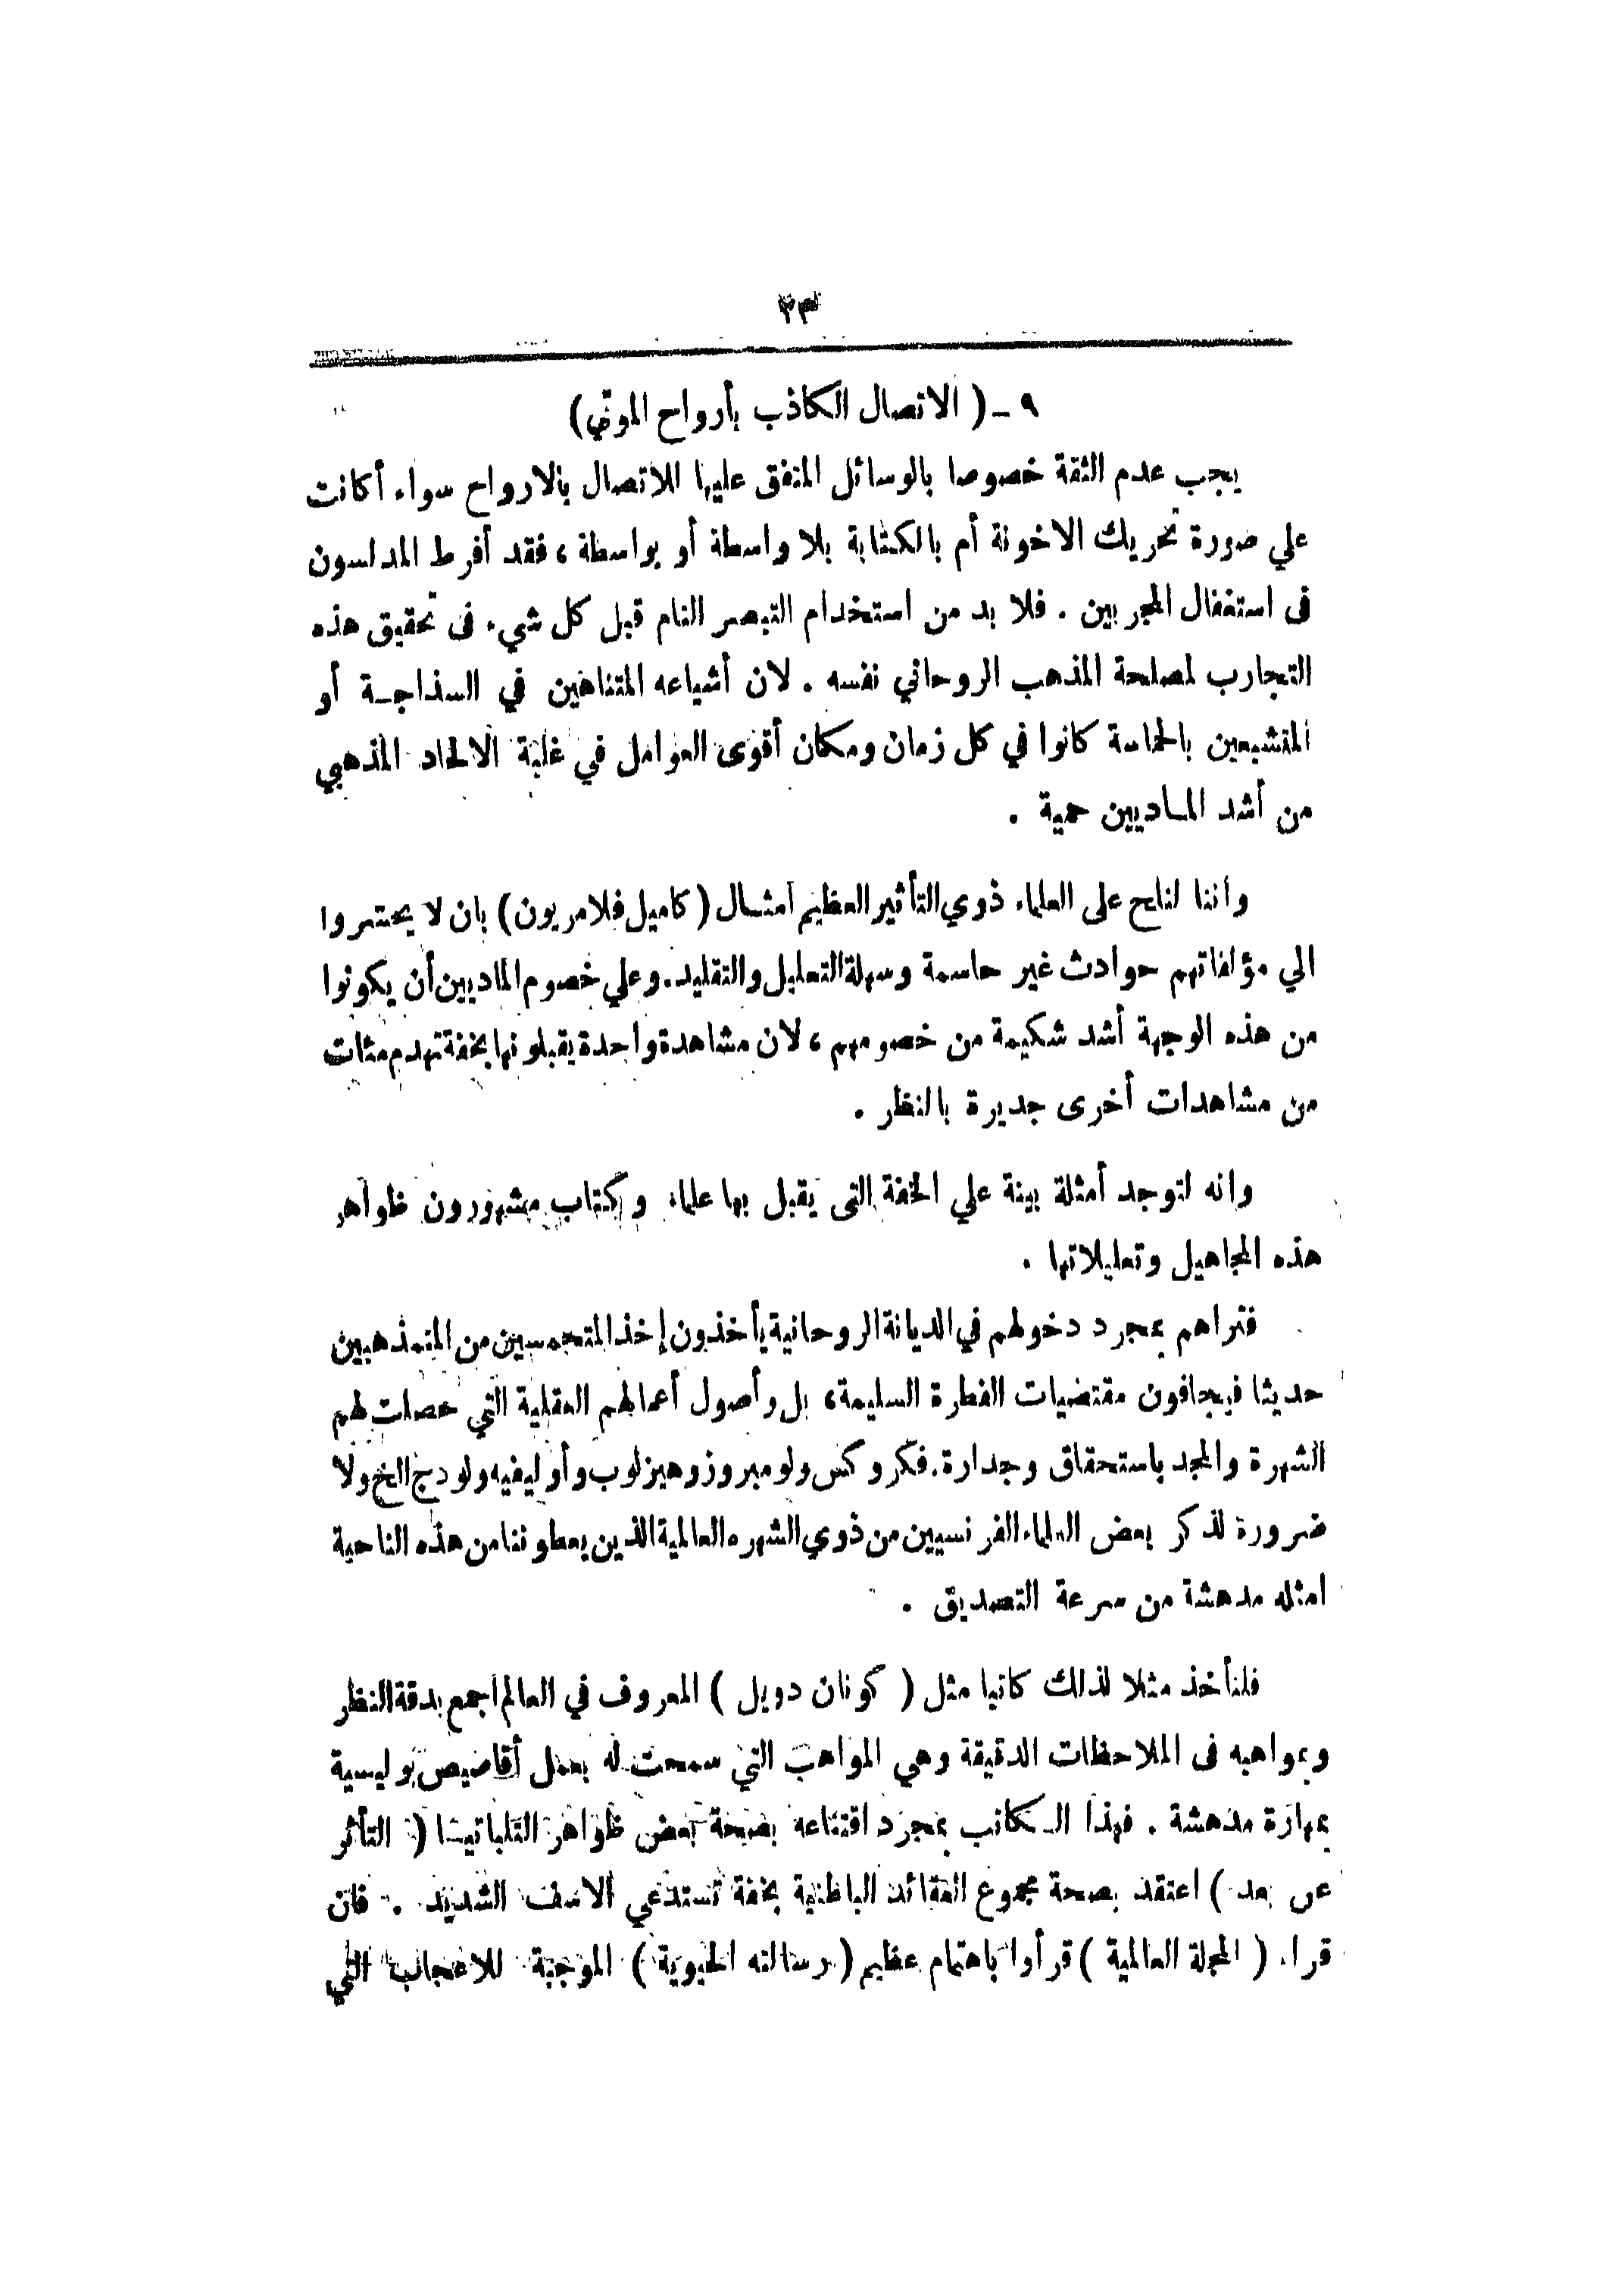 ٢٣
٩ ـ ( الاتصال الكاذب بأرواح الموتي)
يجب عدم الثقة خصوصا بالوسائل المتفق عليها للاتصال بالارواح سواء أكانت
علي صورة تحريك الاخونة أم بالكتابة بلا واسطة أو بواسطة ، فقد أفرط المدلسون
فى استغفال المجربين . فلا بد من استخدام التبصر التام قبل كل شيء فى تحقيق هذه
التجارب لمصلحة المذهب الروحاني نفسه . لان أشياعه المتناهين في السذاجة أو
المتشيعين بالحماسة كانوا في كل زمان ومكان أقوى العوامل في غلبة الالحاد المذهبي
من أشد الماديين حمية .
واننا لنلح على العلماء ذوي التأثير العظيم امثال ( كاميل فلامريون ) بان لا يحتسروا
الي مؤلفاتهم حوادث غير حاسمة وسهلة التعليل والتقليد . وعلي خصوم الماديين أن يكونوا
من هذه الوجهة أشد شكيمة من خصومهم ، لان مشاهدة واحدة يقبلونها بخفة تهدم مئات
من مشاهدات أخرى جديرة بالنظر .
وانه لتوجد أمثلة بينة علي الخفة التى يقبل بها علماء وكتاب مشهورون ظواهر
هذه المجاهيل وتعليلاتها .
فتراهم بمجرد دخولهم في الديانة الروحانية يأخذون إخذ المتحمسين من المتمذهبين
حديثا فيجافون مقتضيات الفطرة السليمة ، بل وأصول أعمالهم العقلية التي حصلت لهم
الشهرة والمجد باستحقاق وجدارة . فكروكس ولومبروز وهيزلوب وأوليفيه ولودج الخ ولا
ضرورة لذكر بعض العلماء الفرنسيين من ذوي الشهره العالمية الذين يعطوننا من هذه الناحية
امثله مدهشة من سرعة التصديق .
فلنأخذ مثلا لذلك كاتبا مثل ( كونان دويل ) المعروف في العالم اجمع بدقة النظر
وبمواهبه فى الملاحظات الدقيقة وهي المواهب التي سمحت له بعمل أقاصيص بوليسية
بمهارة مدهشة . فهذا الكاتب بمجرد اقتناعه بصحة بعض ظواهر التلباتيا ( التأثر
عن بعد ) اعتقد بصحة مجموع العقائد الباطنية بخفة تستدعي الاسف الشديد . فان
قراء ( المجلة العالمية ) قرأوا باهتمام عظيم ( رسالته الحيوية ) الموجبة للاعجاب التي